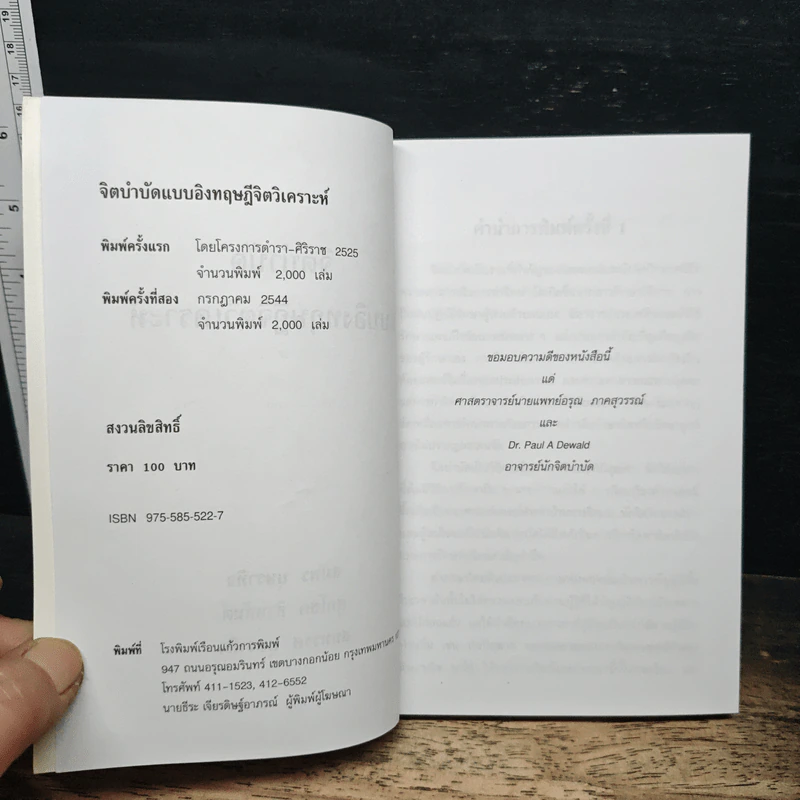 จิตบำบัดแบบอิงทฤษฎีจิตวิเคราะห์
พิมพ์ครั้งแรก โดยโครงการตำรา-ศิริราช 2525
จำนวนพิมพ์ 2,000 เล่ม
พิมพ์ครั้งที่สอง กรกฎาคม 2544
จำนวนพิมพ์ 2,000 เล่ม
สงวนลิขสิทธิ์
ราคา 100 บาท
ISBN 975-585-522-7
พิมพ์ที่ โรงพิมพ์เรือนแก้วการพิมพ์
947 ถนนอรุณอมรินทร์ เขตบางกอกน้อย กรุงเทพมหานคร
โทรศัพท์ 411-1523, 412-6552
นายธีระ เจียรดิษฐ์อาภรณ์ ผู้พิมพ์ผู้โฆษณา
ขอมอบความดีของหนังสือนี้
แด่
ศาสตราจารย์นายแพทย์อรุณ ภาคสุวรรณ์
และ
Dr. Paul A Dewald
อาจารย์นักจิตบำบัด
19
18
17
16
6
5